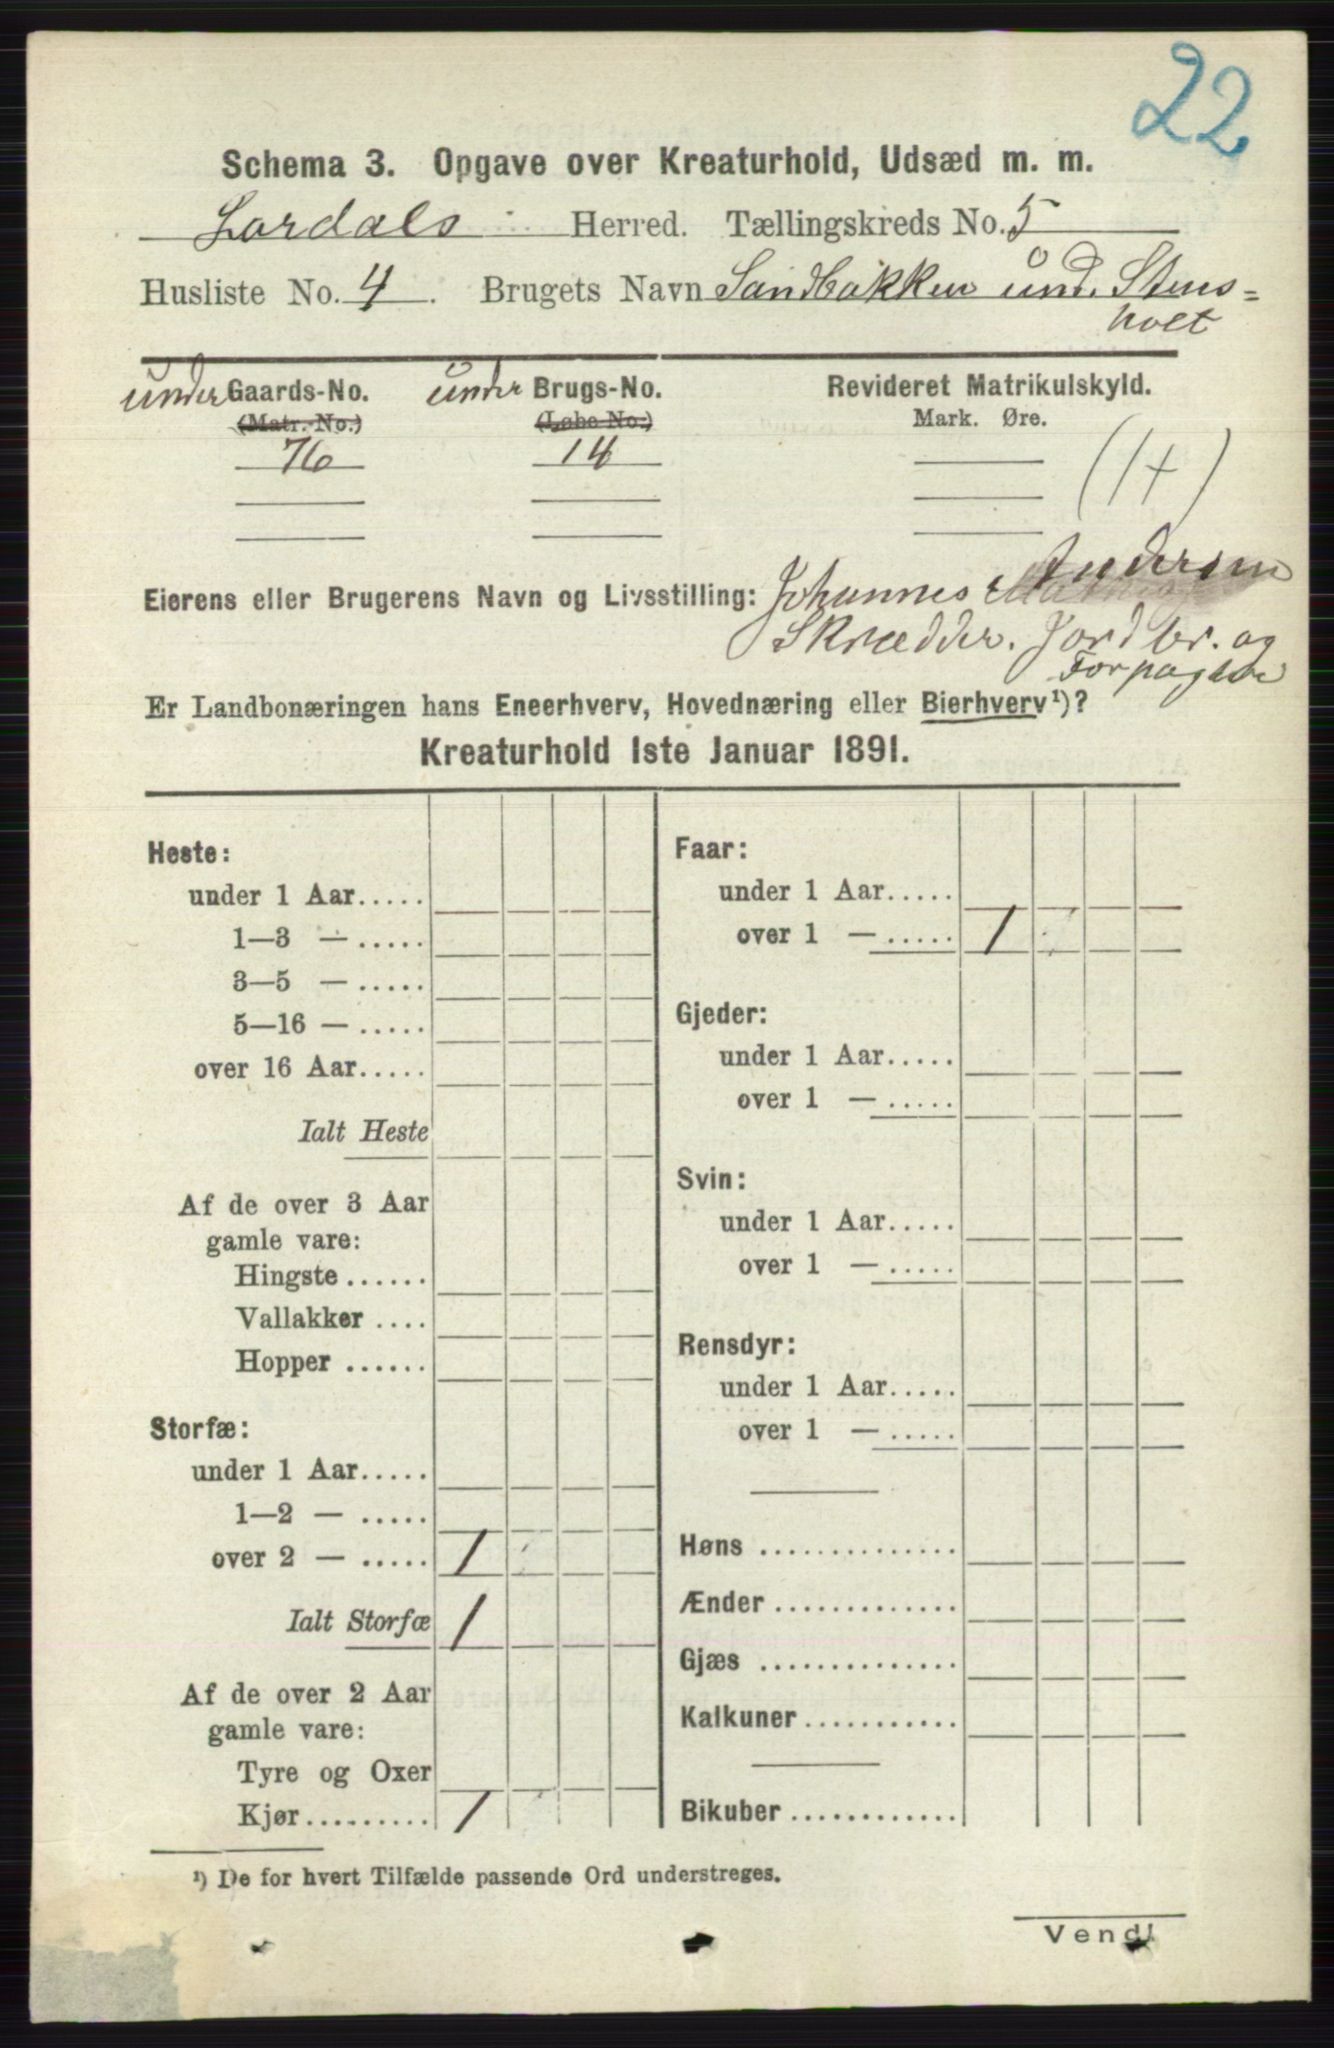 22
Schema 3. Opgave over Kreaturhold, Udsæd m. m.
Lardals Herred. Tællingskreds No. 5
Husliste No. 4. Brugets Navn Sandbakken und. Stens=
holt
under Gaards-No. under Brugs-No. Revideret Matrikulskyld.
(Matr.-No.) (Løbe-No.) Mark. Øre.
76 14
(14)
Eierens eller Brugerens Navn og Livsstilling: Johannes Andersen
Skrædder. Jordbr. og
Forpagter
Er Landbonæringen hans Eneerhverv, Hovednæring eller Bierhverv¹)?
Kreaturhold 1ste Januar 1891.
Heste:
under 1 Aar.....
1—3 — .....
3—5 — .....
5—16 — .....
over 16 Aar.....
Ialt Heste
Af de over 3 Aar
gamle vare:
Hingste ......
Vallakker ....
Hopper ......
Storfæ:
under 1 Aar.....
1—2 — .....
over 2 — ..... 1
Ialt Storfæ 1
Af de over 2 Aar
gamle vare:
Tyre og Oxer
Kjør......... 1
Faar:
under 1 Aar.....
over 1 — ..... 1
Gjeder:
under 1 Aar.....
over 1 — .....
Svin:
under 1 Aar.....
over 1 — .....
Rensdyr:
under 1 Aar.....
over 1 — .....
Høns ..............
Ænder .............
Gjæs ..............
Kalkuner...........
Bikuber ............
¹) De for hvert Tilfælde passende Ord understreges.
Vend!